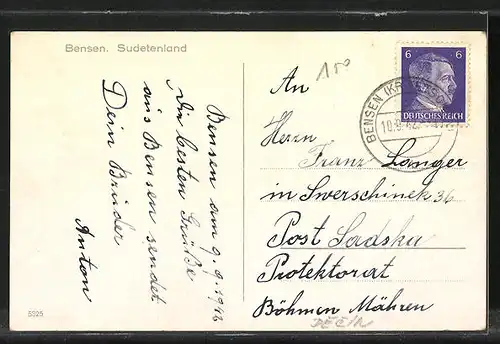 Bensen. Sudetenland
Bensen am 9.9.1942
Die besten Grüße
aus Bensen sendet
Dein Bruder
Anton
5325
150
An
Herrn
Franz Langer
in Swerschinek 36
Post Sadska
Protektorat
Böhmen Mähren
DĚČÍN
6 6
DEUTSCHES REICH
BENSEN
10.9.42